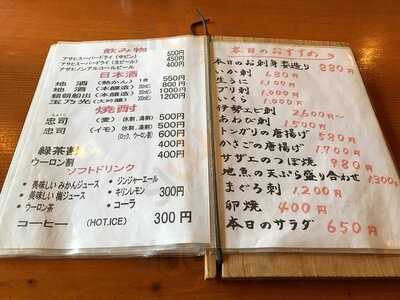 飲み物
アサヒスーパードライ(中ビン) 500円
アサヒスーパードライ(生ビール) 450円
アサヒノンアルコールビール 400円
日本酒
地酒(熱かん) 1合 550円
地酒(本醸造) 800円
(本醸造) 1000円
玉乃光(大吟醸) 1200円
焼酎
忠司(麦)(水割、湯割) 500円
忠司(イモ)(水割、湯割) 500円
(ロック、ウーロン割) 500円
緑茶割 400円
ウーロン割 400円
ソフトドリンク
・美味しいみかんジュース
・美味しい梅ジュース
・ウーロン茶
・ジンジャーエール
・キリンレモン 300円
・コーラ
コーヒー (HOT.ICE) 300円
本日のおすすめ
本日のお刺身盛り 880円
いか刺 680円
生うに 1,000円
ぶり刺 1,000円
いくら 1,000円
伊勢エビ刺 2600円〜
あわび刺 1500円
トンガリの唐揚げ 580円
かさごの唐揚げ 1700円
サザエのつぼ焼 980円
地魚の天ぷら盛り合わせ 1300円
まぐろ刺 1200円
卵焼 400円
本日のサラダ 650円